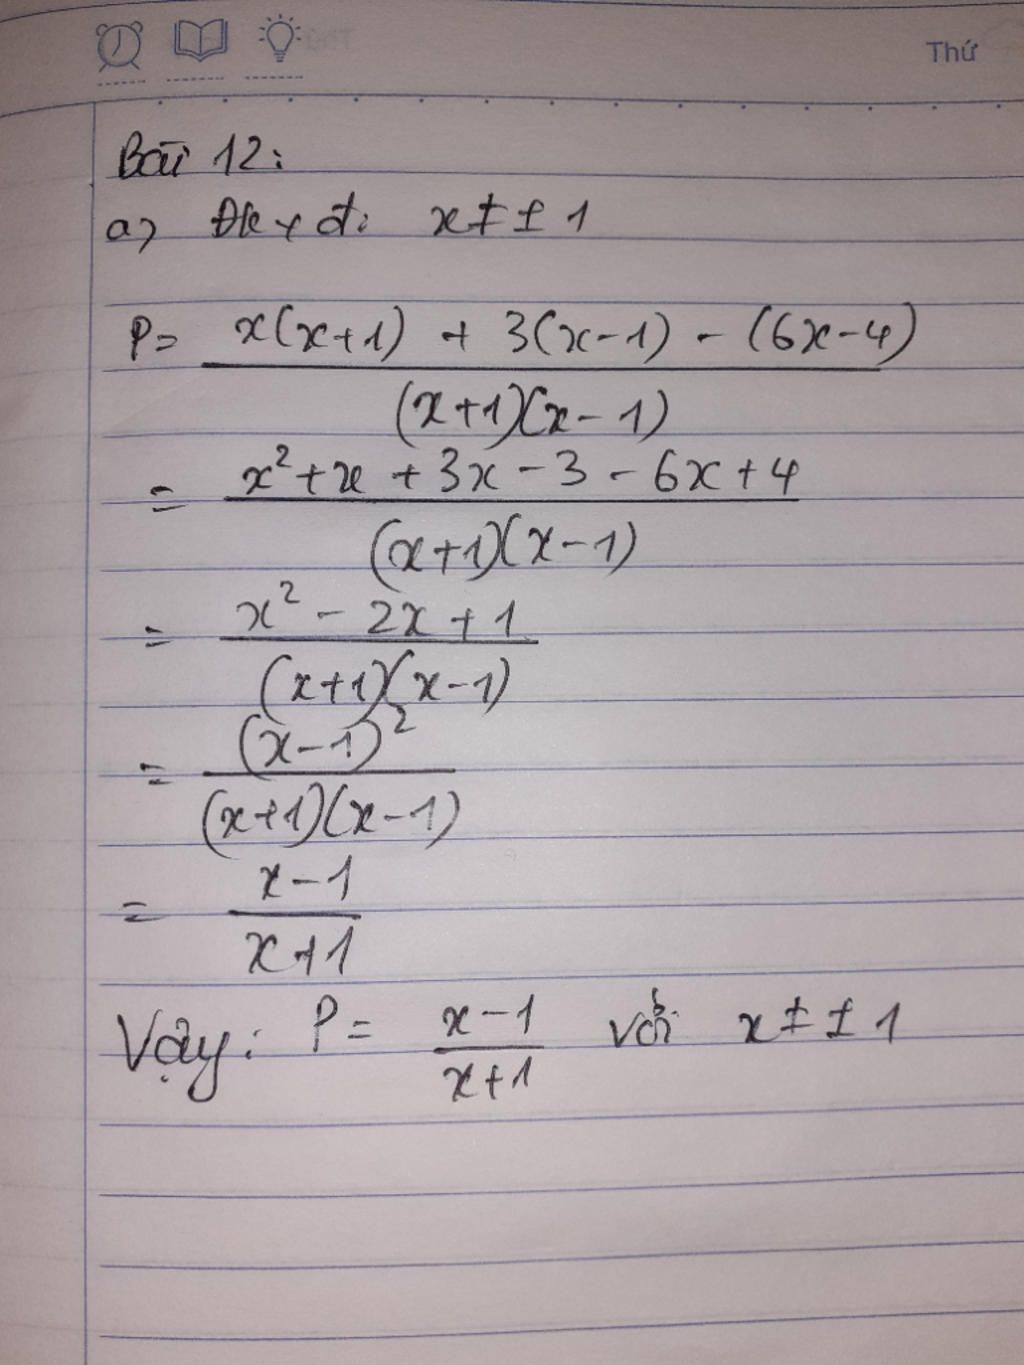 Thứ
Bài 12:
a) Đkxđ: x ≠ ± 1
P = \frac{x(x+1) + 3(x-1) - (6x-4)}{(x+1)(x-1)}
= \frac{x² + x + 3x - 3 - 6x + 4}{(x+1)(x-1)}
= \frac{x² - 2x + 1}{(x+1)(x-1)}
= \frac{(x-1)²}{(x+1)(x-1)}
= \frac{x-1}{x+1}
Vậy: P = \frac{x-1}{x+1} với x ≠ ± 1